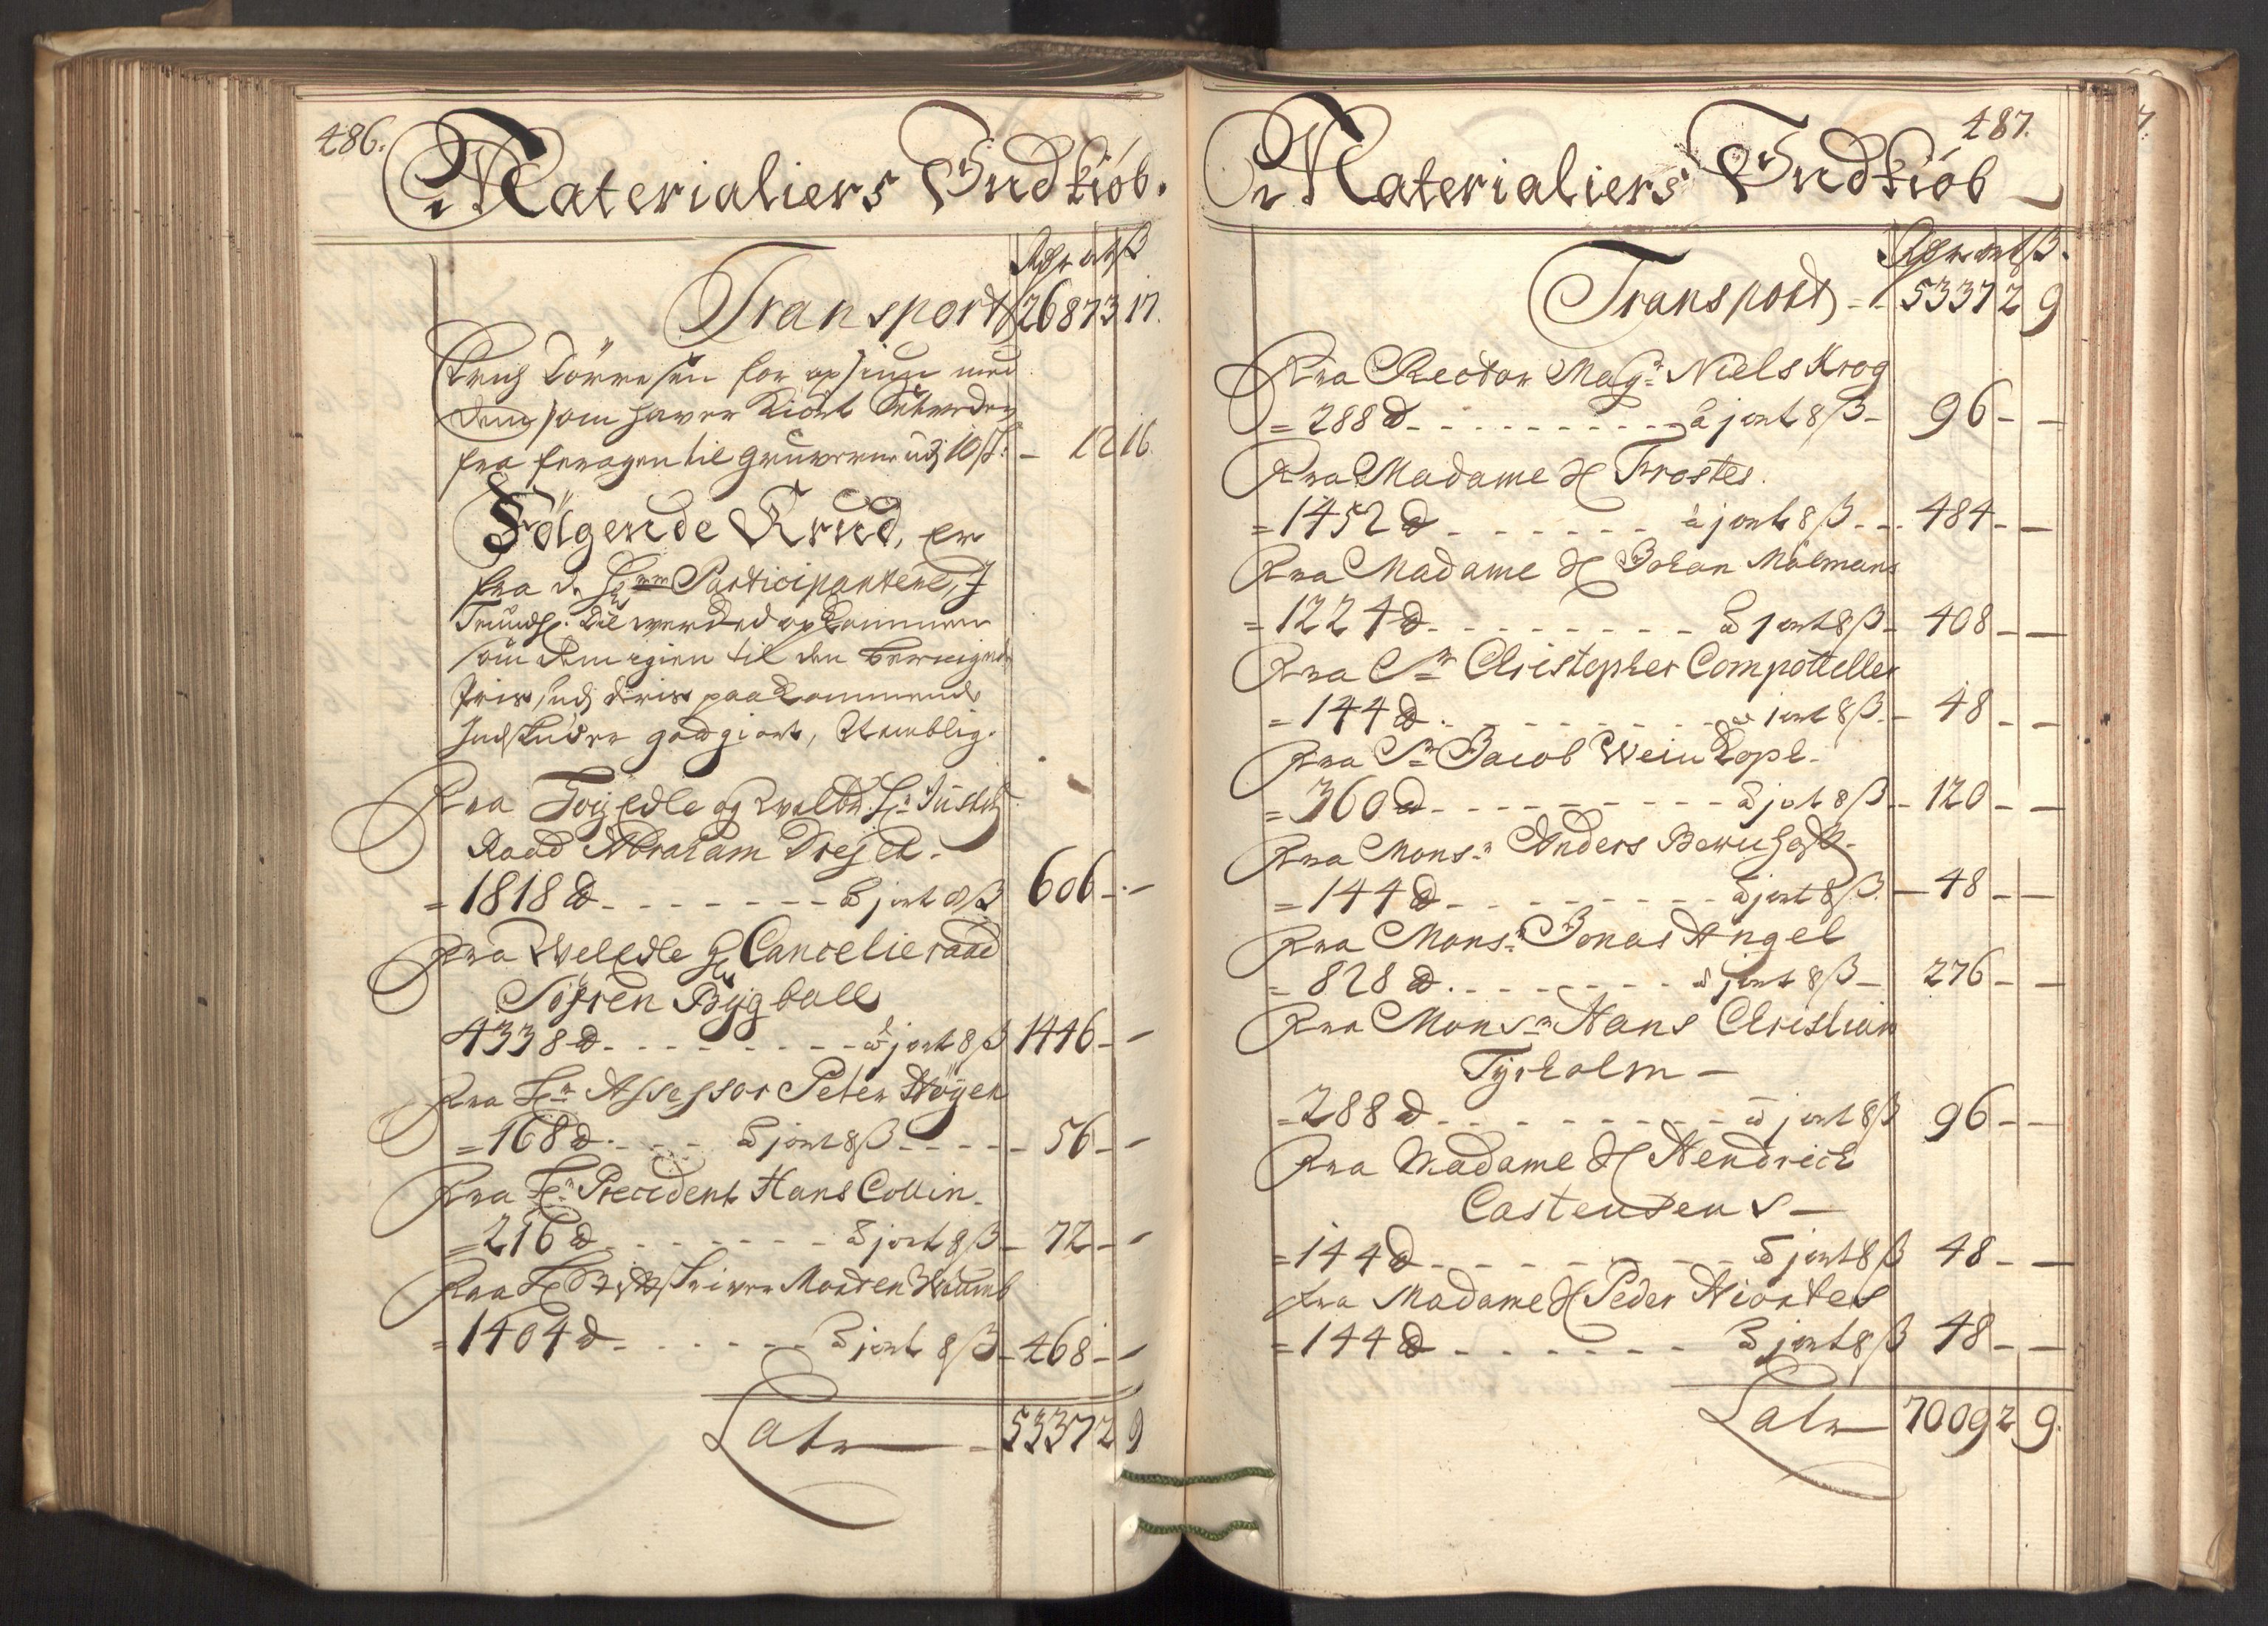 486.
Materialiers Indkiöb.
Rdr ort ß
Transport 2687 3 17.
Erich Törresen for opsiun med
dem som haver Kiört
fra til Gruverne 10 ß: – 12 16.
Fölgende Krud, er
fra de Hrr Participantere, I
Trundh:
som til den
Priis,
godgiort, Nemblig.
Fra Hoÿedle og Velb: Hr: Justitz
Raad Abraham Dreÿer.
= 1818 ℔ - - - - - - - à 1 ort 8 ß 606 - -
Fra Veledle Hr Cancelieraad
Söfren Bÿgball
4338 ℔ - - - - - - - à 1 ort 8 ß 1446 - -
Fra Hr: Assessor Peter Höÿer
= 168 ℔ - - - à 1 ort 8 ß - - - - 56 - -
Fra Hr: Precident Hans Collin.
= 216 ℔ - - - - - - - à 1 ort 8 ß - 72 - -
Fra Hr skriver Morten
= 1404 ℔ - - - - - - à 1 ort 8 ß - 468 - -
Latr – 5337 2 9
487.
Materialiers Indkiöb
Rdr ort ß.
Transport - - 5337 2 9
Fra Rector Magr: Niels Krog
= 288 ℔ - - - - - - - - - à 1 ort 8 ß - 96 - -
Fra Madame Sl Frostes.
= 1452 ℔ - - - - - - à 1 ort 8 ß - - 484 - -
Fra Madame Sl Johan Mölmans
= 1224 ℔ - - - - - - - - à 1 ort 8 ß - 408 - -
Fra Sr Christopher Compotteller
= 144 ℔ - - - - - - - - à 1 ort 8 ß - 48 - -
Fra Sr Jacob Weinkopf.
= 360 ℔ - - - - - - - - - à 1 ort 8 ß - 120 - -
Fra Monsr: Anders
= 144 ℔ - - - - - - - - - à 1 ort 8 ß - 48 - -
Fra Monsr: Jonas Angel
= 828 ℔ - - - - - - - - à 1 ort 8 ß - 276 - -
Fra Monsr: Hans Christian
Tÿrholm –
= 288 ℔ - - - - - - - - - à 1 ort 8 ß 96 - -
Fra Madame Sl Hendrich
Castensens –
= 144 ℔ - - - - - - - - - à 1 ort 8 ß 48 - -
fra Madame Sl Peder Hiortes
= 144 ℔ - - - - - - - à 1 ort 8 ß 48 - -
Latr 7009 2 9.